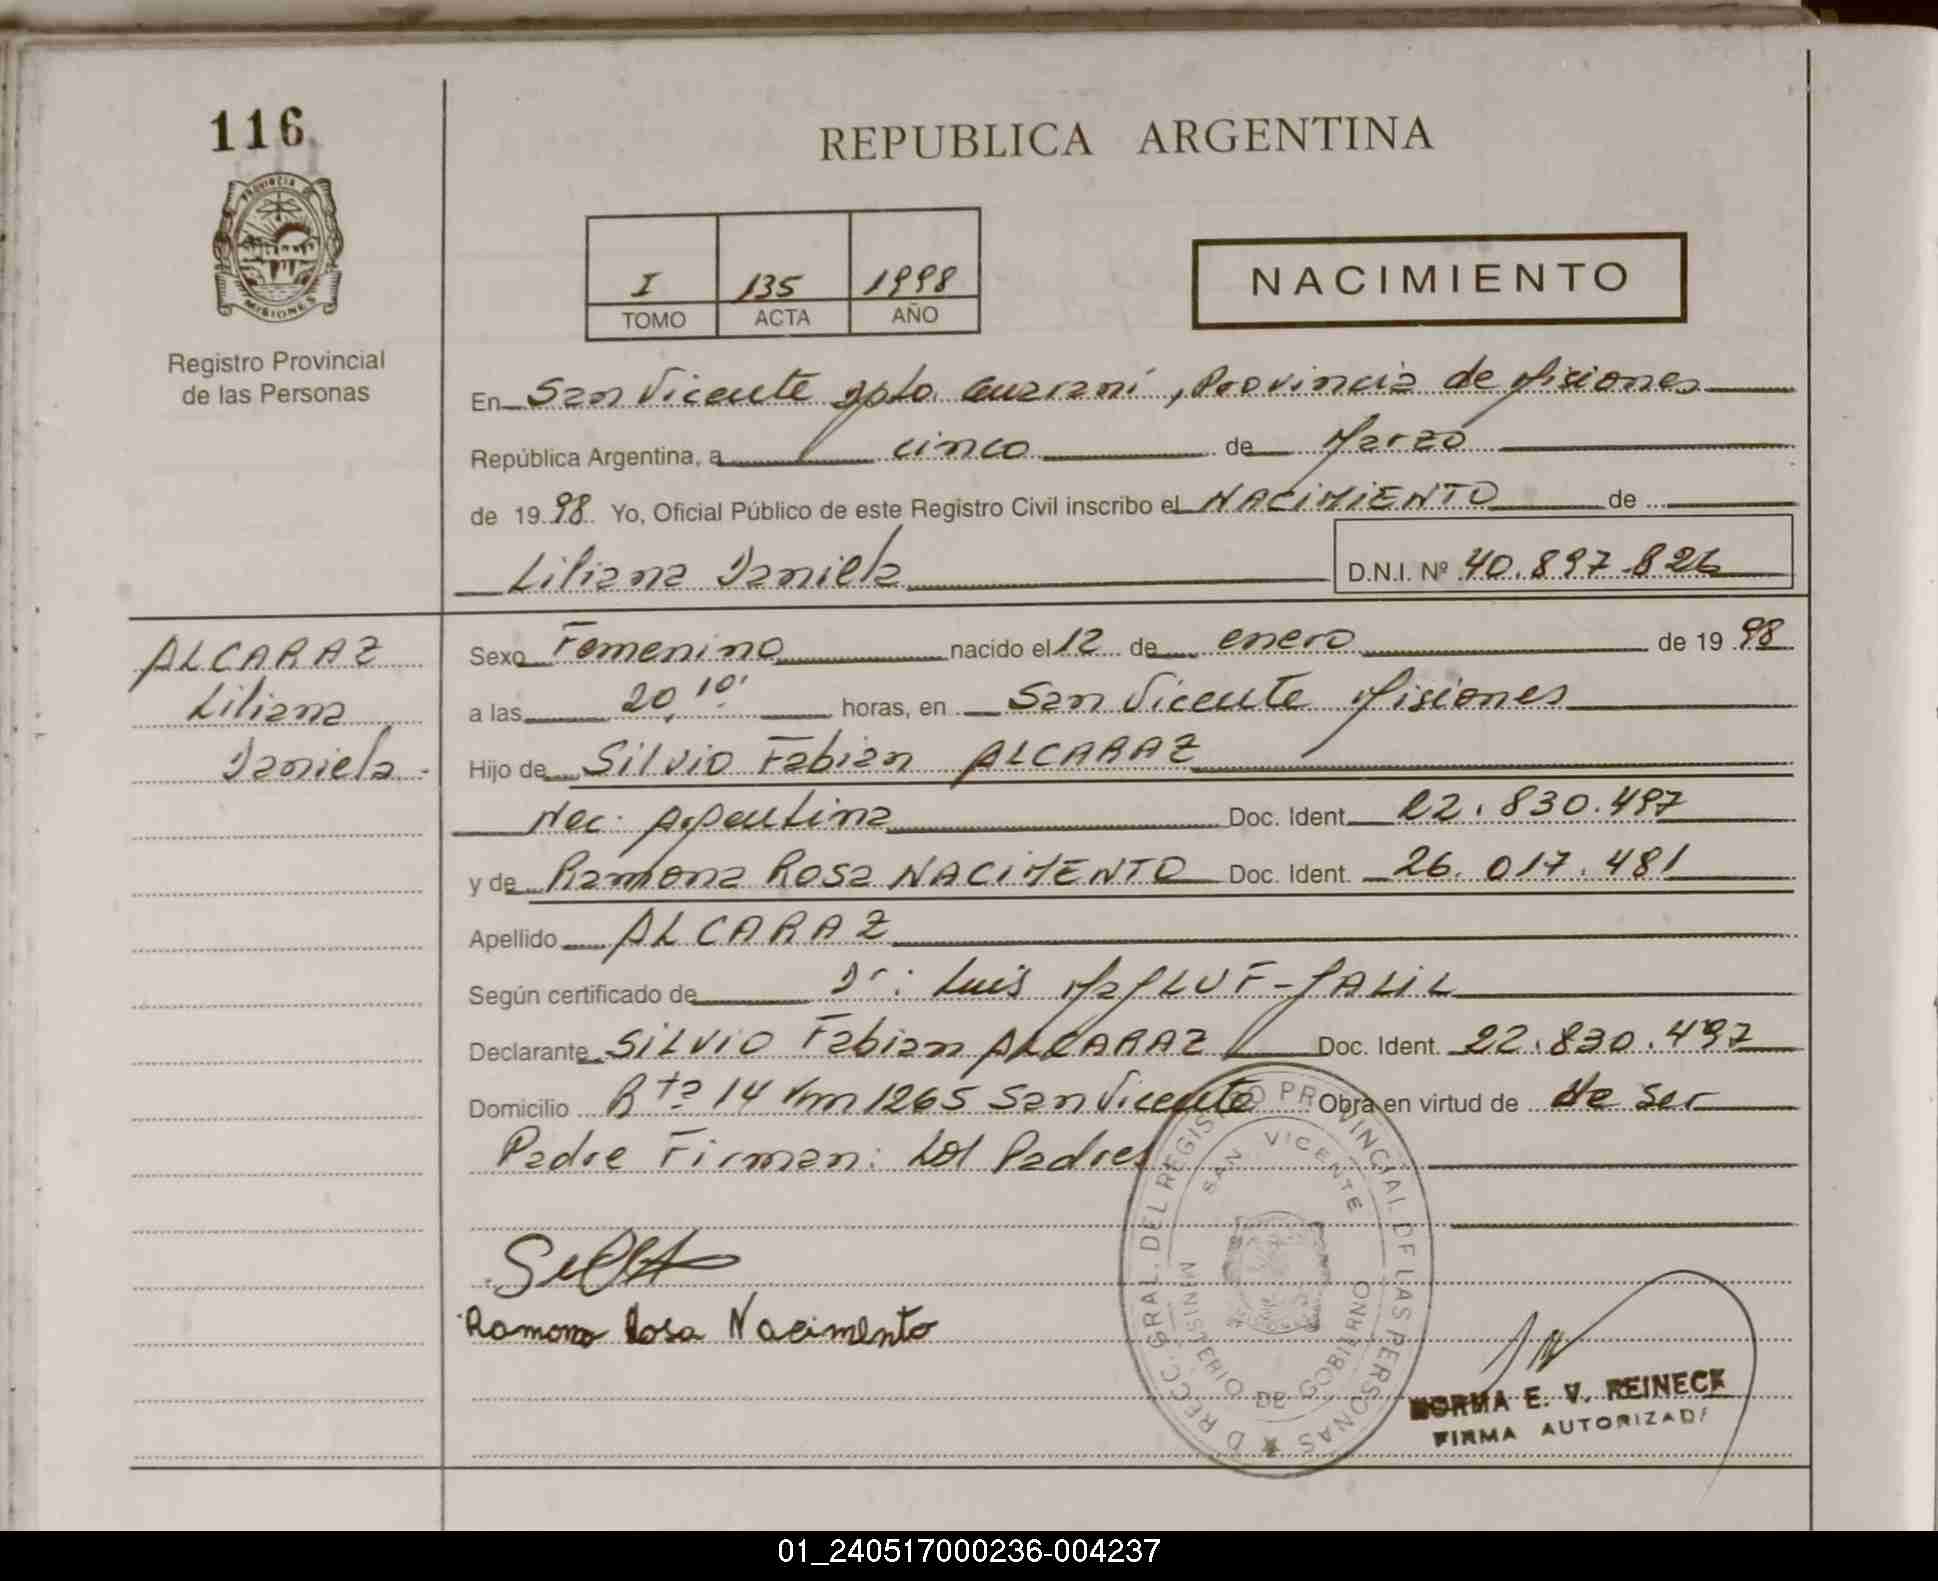 116
REPUBLICA ARGENTINA
PROVINCIA DE
MISIONES
Registro Provincial
de las Personas
I 135 1998
TOMO ACTA AÑO
NACIMIENTO
En San Vicente Dpto. Guaraní, Provincia de Misiones
República Argentina, a cinco de Marzo
de 1998 Yo, Oficial Público de este Registro Civil inscribo el NACIMIENTO de
Liliana Daniela D.N.I. Nº 40.897.826
ALCARAZ
Liliana
Daniela.
Sexo Femenino nacido el 12 de enero de 1998
a las 20,10' horas, en San Vicente Misiones
Hijo de Silvio Fabian ALCARAZ
Nac. Argentina Doc. Ident. 22.830.497
y de Ramona Rosa NACIMENTO Doc. Ident. 26.017.481
Apellido ALCARAZ
Según certificado de Dr: Luis
Declarante SILVIO Fabian ALCARAZ Doc. Ident. 22.830.497
Domicilio Rta 14 Km 1265 San Vicente Obra en virtud de de ser
Padre Firman: Los Padres
Ramona Rosa Nacimento
D RECC. GRAL. DEL REGISTRO PROVINCIAL DE LAS PERSONAS
SAN VICENTE
MINISTERIO DE GOBIERNO
NORMA E. V. REINECK
FIRMA AUTORIZADA
01_240517000236-004237